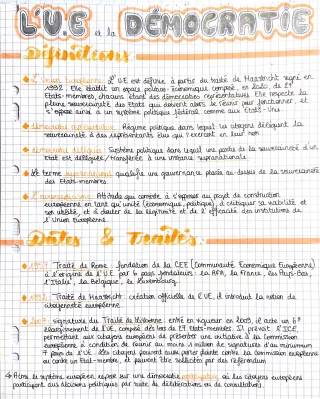 L'U.E et la DÉMOCRATIE
Définitions
• L'Union Européenne: L'UE est définie à partir du traité de Maastricht signé en
1992. Elle établit un espace politico-économique composé, en 2020, de 27
Etats-membres, chacun étant des démocraties représentatives. Elle respecte la
pleine souveraineté des Etats qui doivent alors se réunir pour fonctionner, et
s'oppose ainsi à un système politique fédéral comme aux Etats-Unis
• démocratie représentative: Régime politique dans lequel les citoyens délèguent la
souveraineté à des représentants élus qui l'exercent en leur nom
• démocratie déléguée: Système politique dans lequel une partie de la souveraineté d'un
Etat est déléguée / transférée à une instance supranationale
• Le terme supranational qualifie une gouvernance placée au dessus de la souveraineté
des Etats-membres.
• L'euroscepticisme: Attitude qui consiste à s'opposer au projet de construction
européenne en tant qu'unité (économique, politique), à critiquer sa viabilité et
son utilité, et à douter de la légitimité et de l'efficacité des institutions de
l'Union Européenne.
Dates & Traités:
• 1957 Traité de Rome: fondation de la CEE (Communauté Economique Européenne)
à l'origine de l'U.E par 6 pays fondateurs: la RFA, la France, les Pays-Bas,
l'Italie, la Belgique, le Luxembourg.
• 1992 Traité de Maastricht: création officielle de l'UE, il introduit la notion de
citoyenneté européenne.
• 2007 signature du Traité de Lisbonne: entré en vigueur en 2009, il acte un
élargissement de l'UE, composé dès lors de 27 Etats-membres. Il prévoit l'ICE,
permettant aux citoyens européens de présenter une initiative à la Commission
européenne à condition de réunir au moins 1 million de signatures d'au minimum
7 pays de l'UE. Les citoyens peuvent aussi porter plainte contre la Commission européenne
ou contre un Etat-membre, et peuvent être sollicités par des référendums
→ Ainsi le système européen repose sur une démocratie où les citoyens européens
participent aux décisions politiques par suite de délibérations ou de consultations.